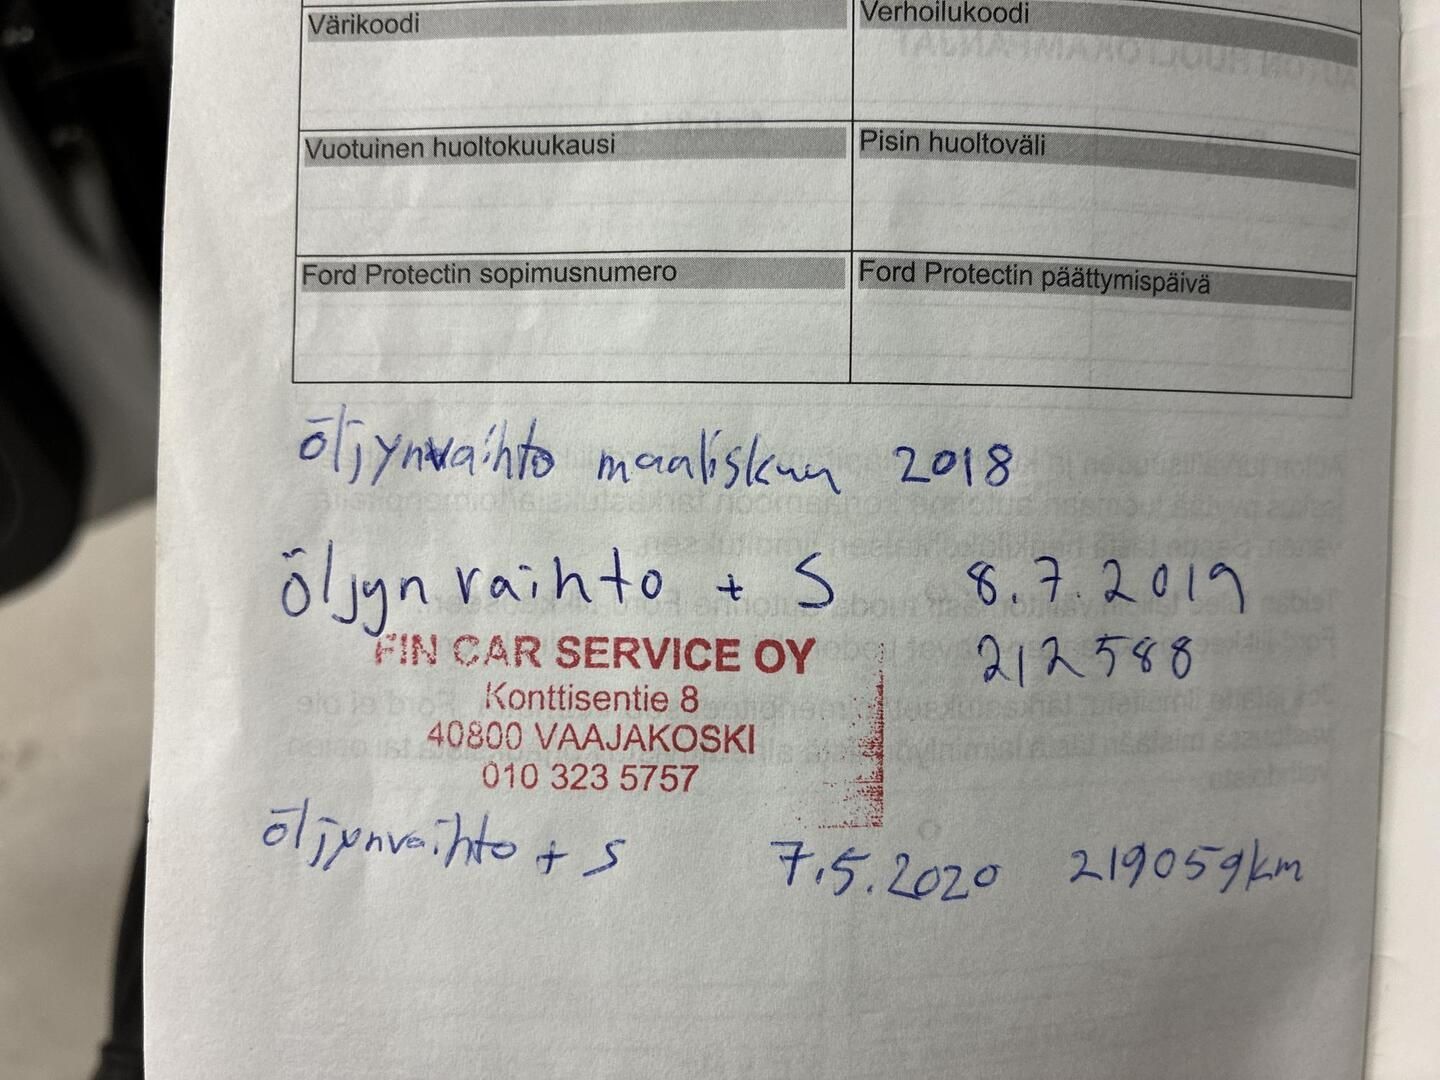 Värikoodi
Verhoilukoodi
Vuotuinen huoltokuukausi
Pisin huoltoväli
Ford Protectin sopimusnumero
Ford Protectin päättymispäivä
öljynvaihto maaliskuu 2018
öljynvaihto + S 8.7.2019
212588
FIN CAR SERVICE OY
Konttisentie 8
40800 VAAJAKOSKI
010 323 5757
öljynvaihto + S 7.5.2020 219059km